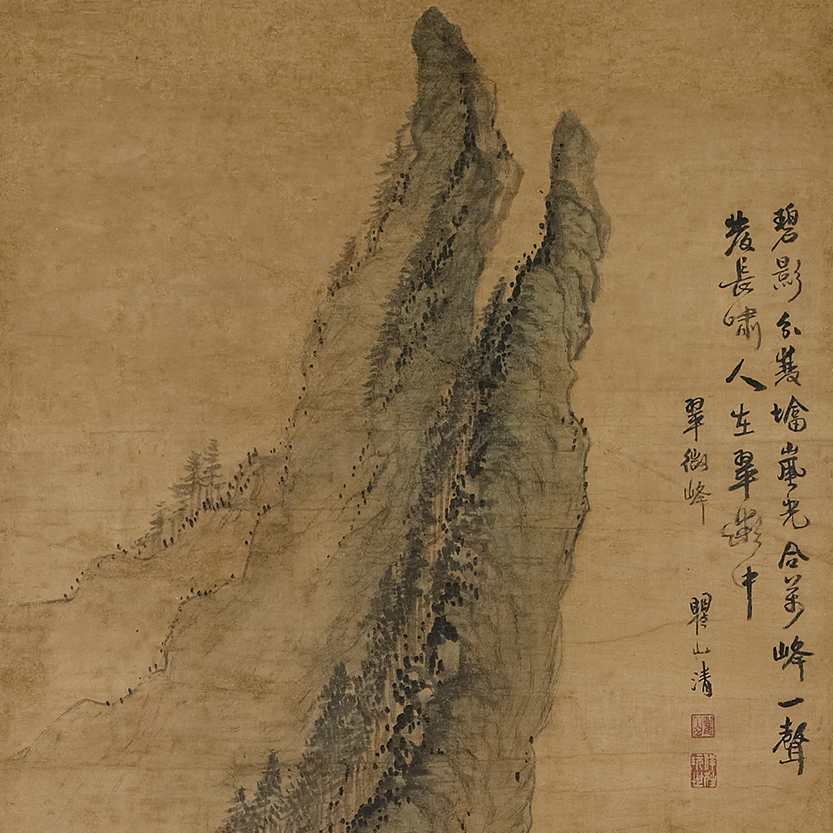 碧影分雙墖嵐光合萬峰一聲
發長嘯人在翠微中
翠微峰
瞿山清